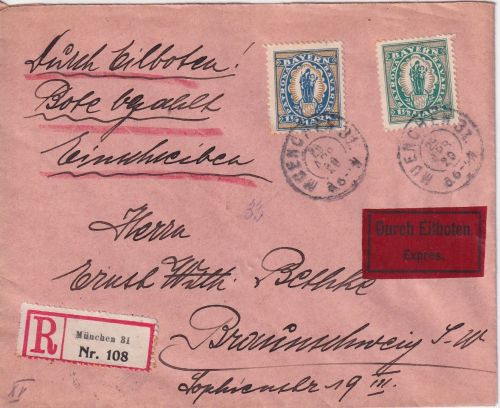 Durch Eilboten!
Bote bezahlt
Einschreiben
BAYERN
BAVARIA
BAYERN
BAVARIA
MUENCHEN 31
MUENCHEN 31
Herrn
Ernst Wilh. Bethke
Braunschweig S-W
Sophienstr 19 III.
Durch Eilboten
Exprès.
R
München 31
Nr. 108